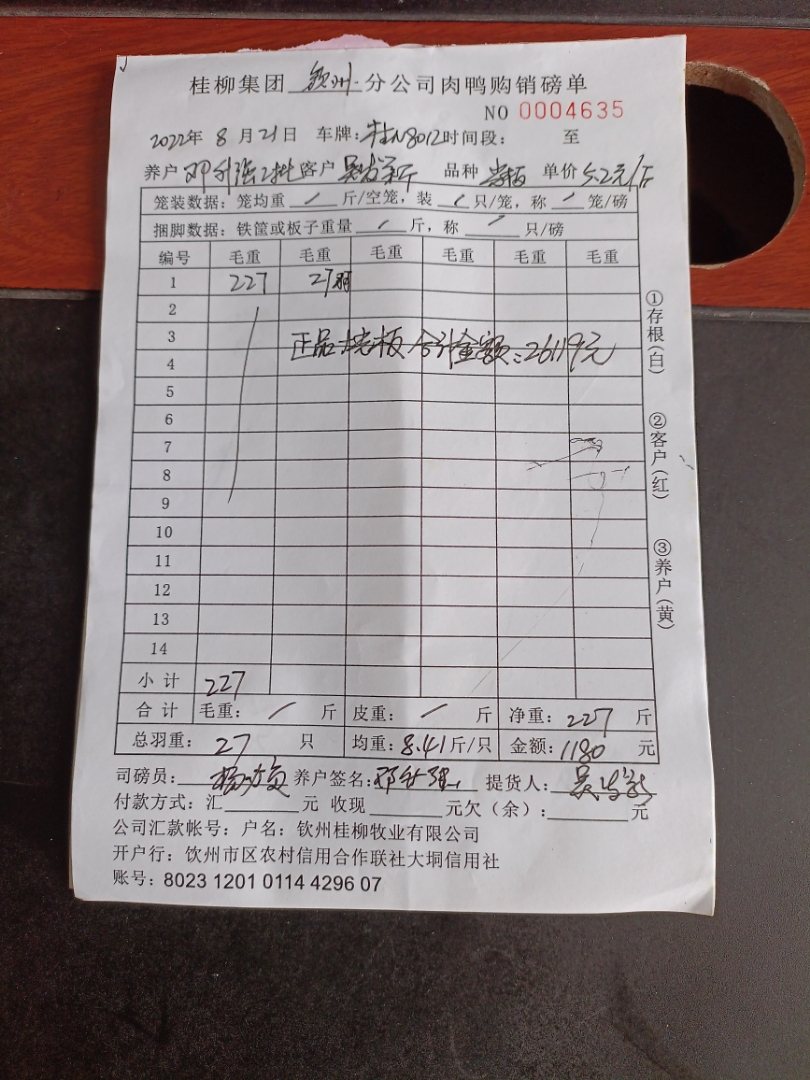 桂柳集团 钦州 分公司肉鸭购销磅单
NO 0004635
2022年 8 月 21日 车牌：桂N8012 时间段： 至
养户 邓升强2批 客户 品种 单价 5.2元/斤
笼装数据：笼均重 / 斤/空笼，装 / 只/笼，称 / 笼/磅
捆脚数据：铁筐或板子重量 / 斤，称 / 只/磅
编号 毛重 毛重 毛重 毛重 毛重 毛重
1 227 27羽
2
3
正品 板 合计金额：26119元
4
5
6
7
8
9
10
11
12
13
14
小 计 227
合 计 毛重： / 斤 皮重： / 斤 净重：227 斤
总羽重： 27 只 均重：8.41斤/只 金额：1180 元
司磅员： 养户签名：邓升强 提货人：
付款方式：汇 元 收现 元欠（余）： 元
公司汇款帐号：户名：钦州桂柳牧业有限公司
开户行：钦州市区农村信用合作联社大垌信用社
账号：8023 1201 0114 4296 07
①存根（白）
②客户（红）
③养户（黄）